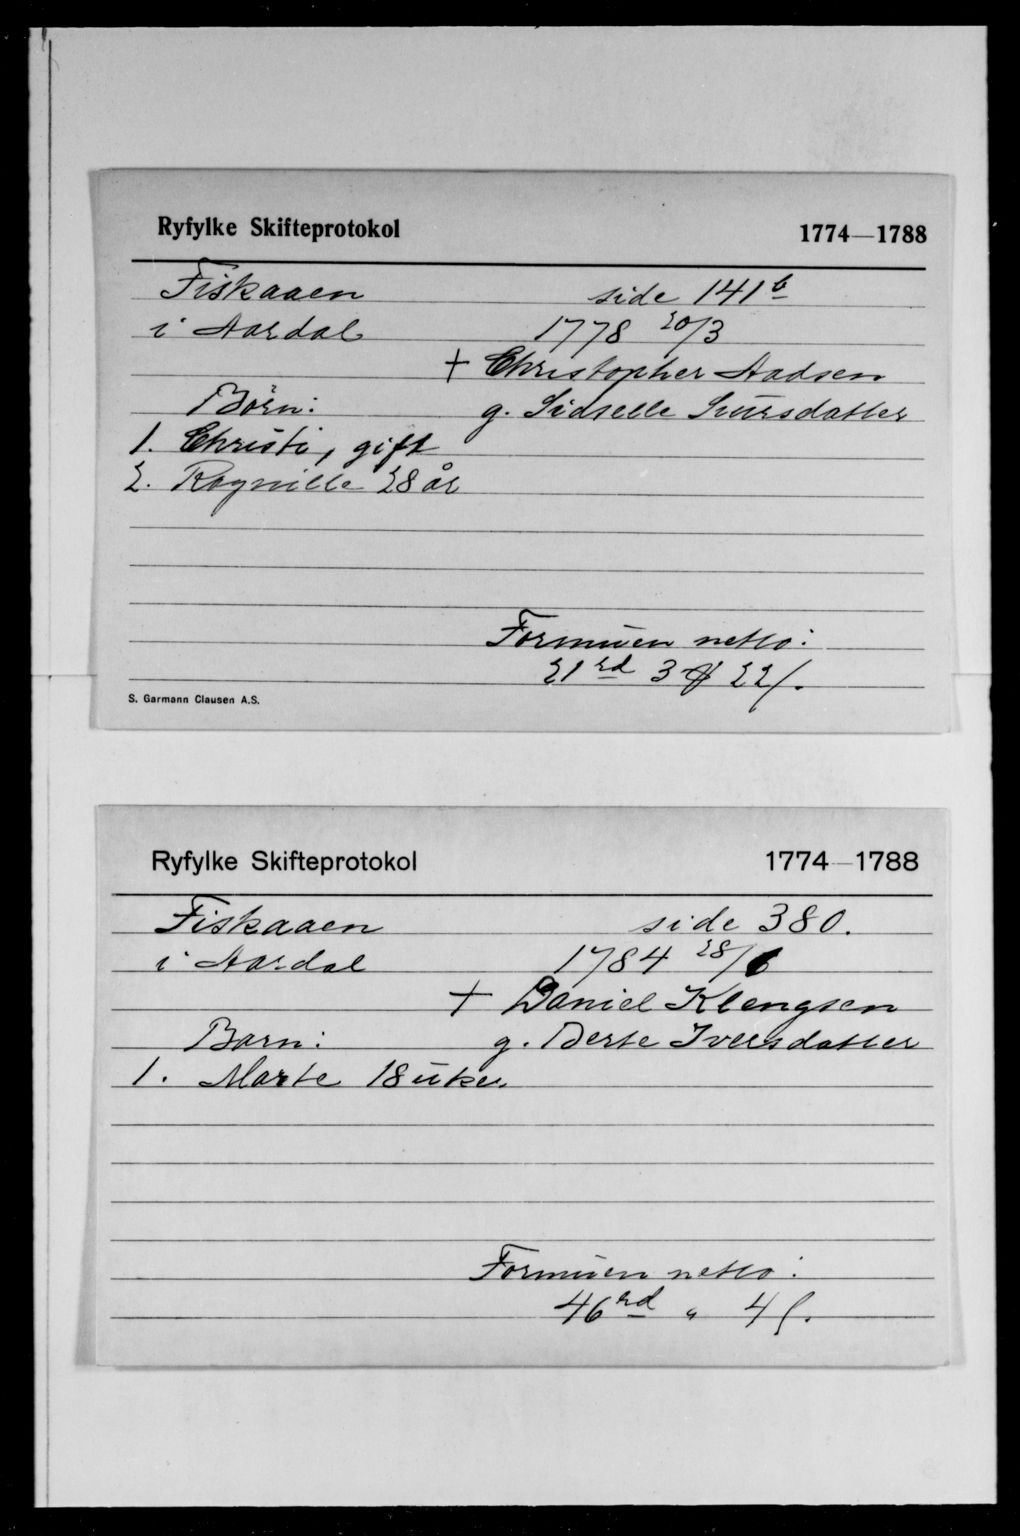 Ryfylke Skifteprotokol 1774—1788
Fiskaaen side 141b
i Aardal 1778 20/3
+ Christopher Aadsen
Börn: g. Sidselle Siursdatter
1. Christi, gift
2. Ragnille 28 år
Formuen netto:
21 rd 3 22
S. Garmann Clausen A.S.
Ryfylke Skifteprotokol 1774—1788
Fiskaaen side 380.
i Aardal 1784 28/6
+ Daniel Klengsen
Barn: g. Berte Iversdatter
1. Marte 18 uker
Formuen netto:
46 rd " 4